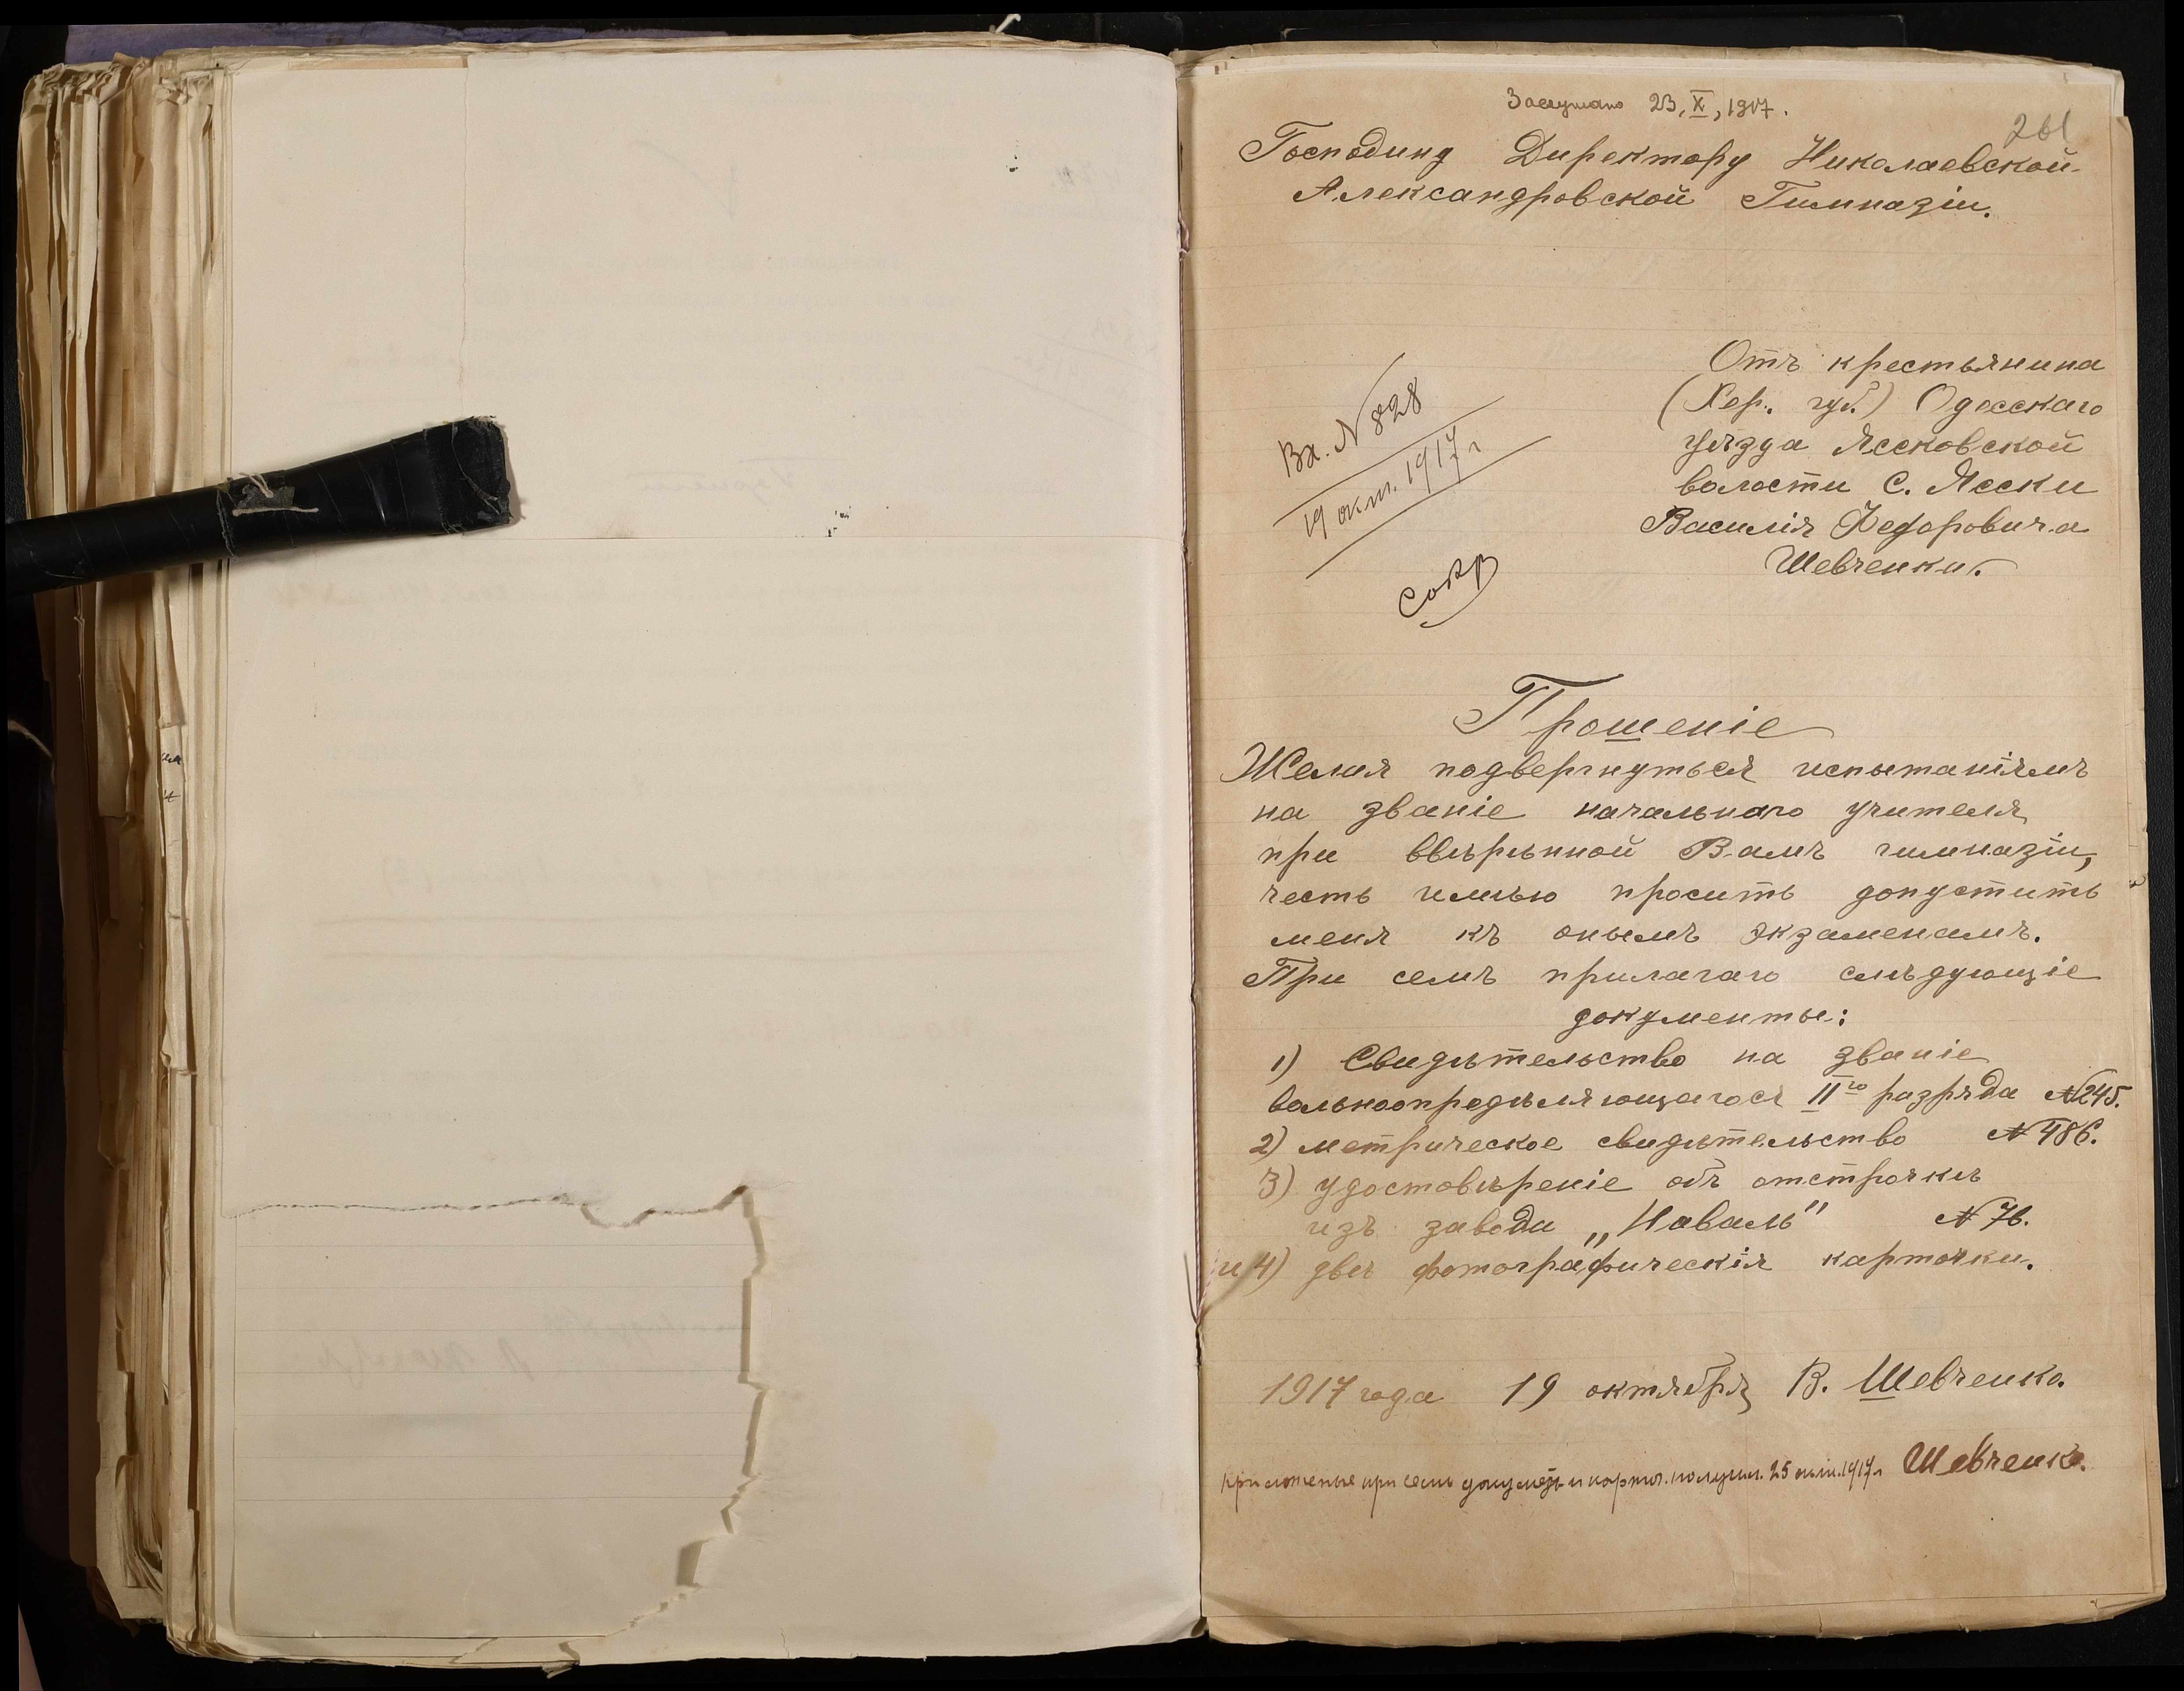 Заслушано 23, X, 1917.
261
Господину Директору Николаевской
Александровской Гимназіи.
Отъ крестьянина
(Хер. губ.) Одесскаго
уѣзда Ясковской
волости С. Яски
Василія Федоровича
Шевченки.
Вх. № 828
19 окт. 1917 г
Прошеніе
Желая подвергнуться испытаніямъ
на званіе начальнаго учителя
при ввѣрѣнной Вамъ гимназіи,
честь имѣю просить допустить
меня къ онымъ экзаменамъ.
При семъ прилагаю слѣдующіе
документы:
1) Свидѣтельство на званіе
вольноопредѣляющагося II го разряда № 245.
2) метрическое свидѣтельство № 486.
3) удостовѣреніе объ отстрочкѣ
изъ завода „Наваль" № 76.
и 4) двѣ фотографическія карточки.
1917 года 19 октября В. Шевченко.
приложеные при семъ докум. и карточ. получил. 25 окт. 1917 г Шевченко.